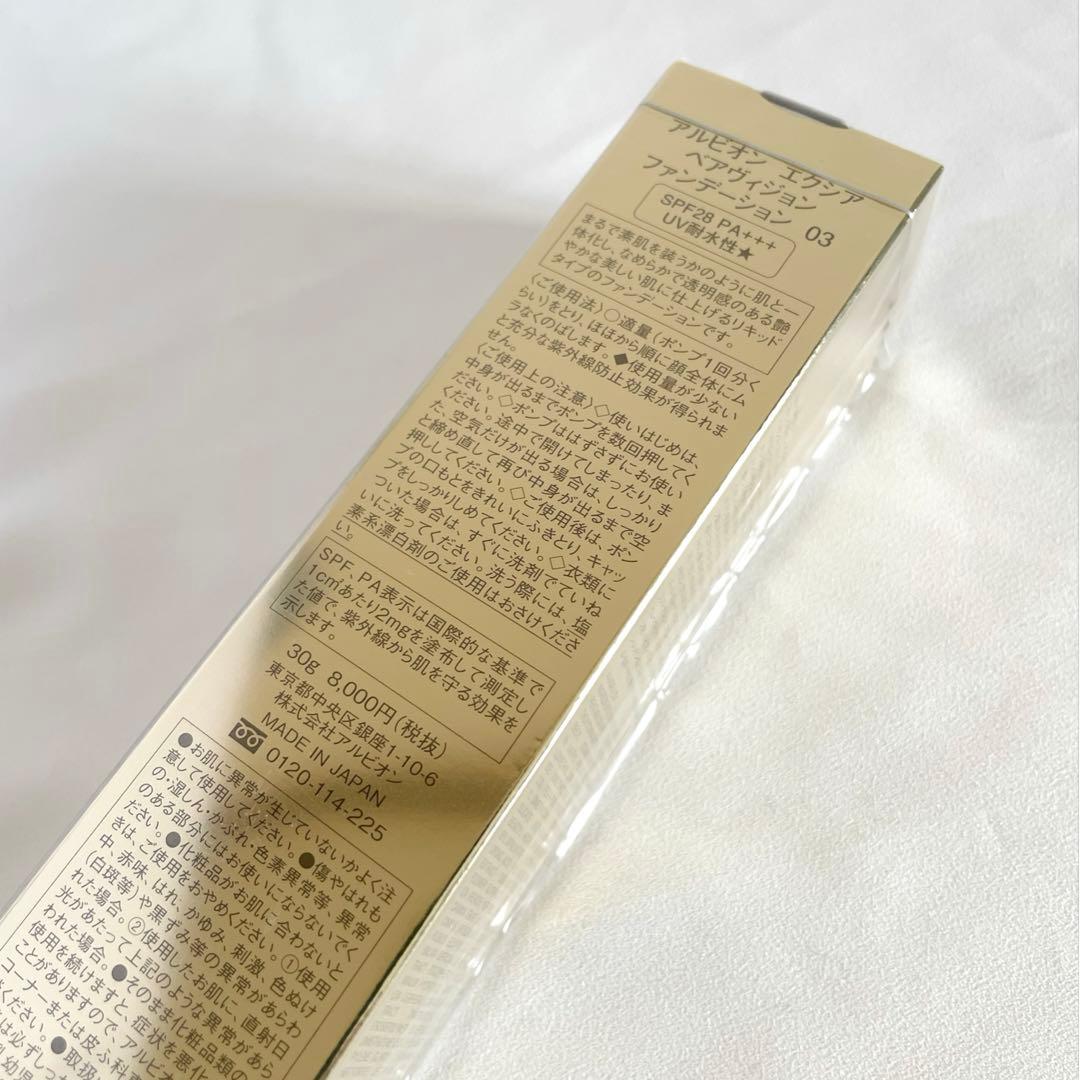 アルビオン エクシア
ベアヴィジョン
ファンデーション 03
SPF28 PA+++
UV耐水性★
まるで素肌を装うかのように肌と一
体化し、なめらかで透明感のある艶
やかな美しい肌に仕上げるリキッド
タイプのファンデーションです。
〈ご使用法〉○適量(ポンプ1回分く
らい)をとり、ほほから順に顔全体にム
ラなくのばします。◆使用量が少ない
と充分な紫外線防止効果が得られま
せん。
〈ご使用上の注意〉◇使いはじめは、
中身が出るまでポンプを数回押して
ください。◇ポンプははずさずにお使い
ください。途中で開けてしまったり、ま
た、空気だけが出る場合は、しっかり
と締め直して再び中身が出るまで空
押ししてください。◇ご使用後は、ポン
プの口もとをきれいにふきとり、キャッ
プをしっかりしめてください。◇衣類に
ついた場合は、すぐに洗剤でていね
いに洗ってください。洗う際には、塩
素系漂白剤のご使用はおさけくださ
い。
SPF、PA表示は国際的な基準で
1c㎡あたり2mgを塗布して測定し
た値で、紫外線から肌を守る効果を
示します。
30g 8,000円(税抜)
東京都中央区銀座1-10-6
株式会社アルビオン
MADE IN JAPAN
0120-114-225
●お肌に異常が生じていないかよく注
意して使用してください。●傷やはれも
の・湿しん・かぶれ・色素異常等、異常
のある部分にはお使いにならないでく
ださい。●化粧品がお肌に合わないと
きは、ご使用をおやめください。①使用
中、赤味、はれ、かゆみ、刺激、色ぬけ
(白斑等)や黒ずみ等の異常があらわ
れた場合。②使用したお肌に、直射日
光があたって上記のような異常があら
われた場合。●そのまま化粧品類の
使用を続けますと、症状を悪化
ことがありますので、アルビオ
コーナーまたは皮ふ科
ください。●取扱い
は必ずしっ
乳幼児